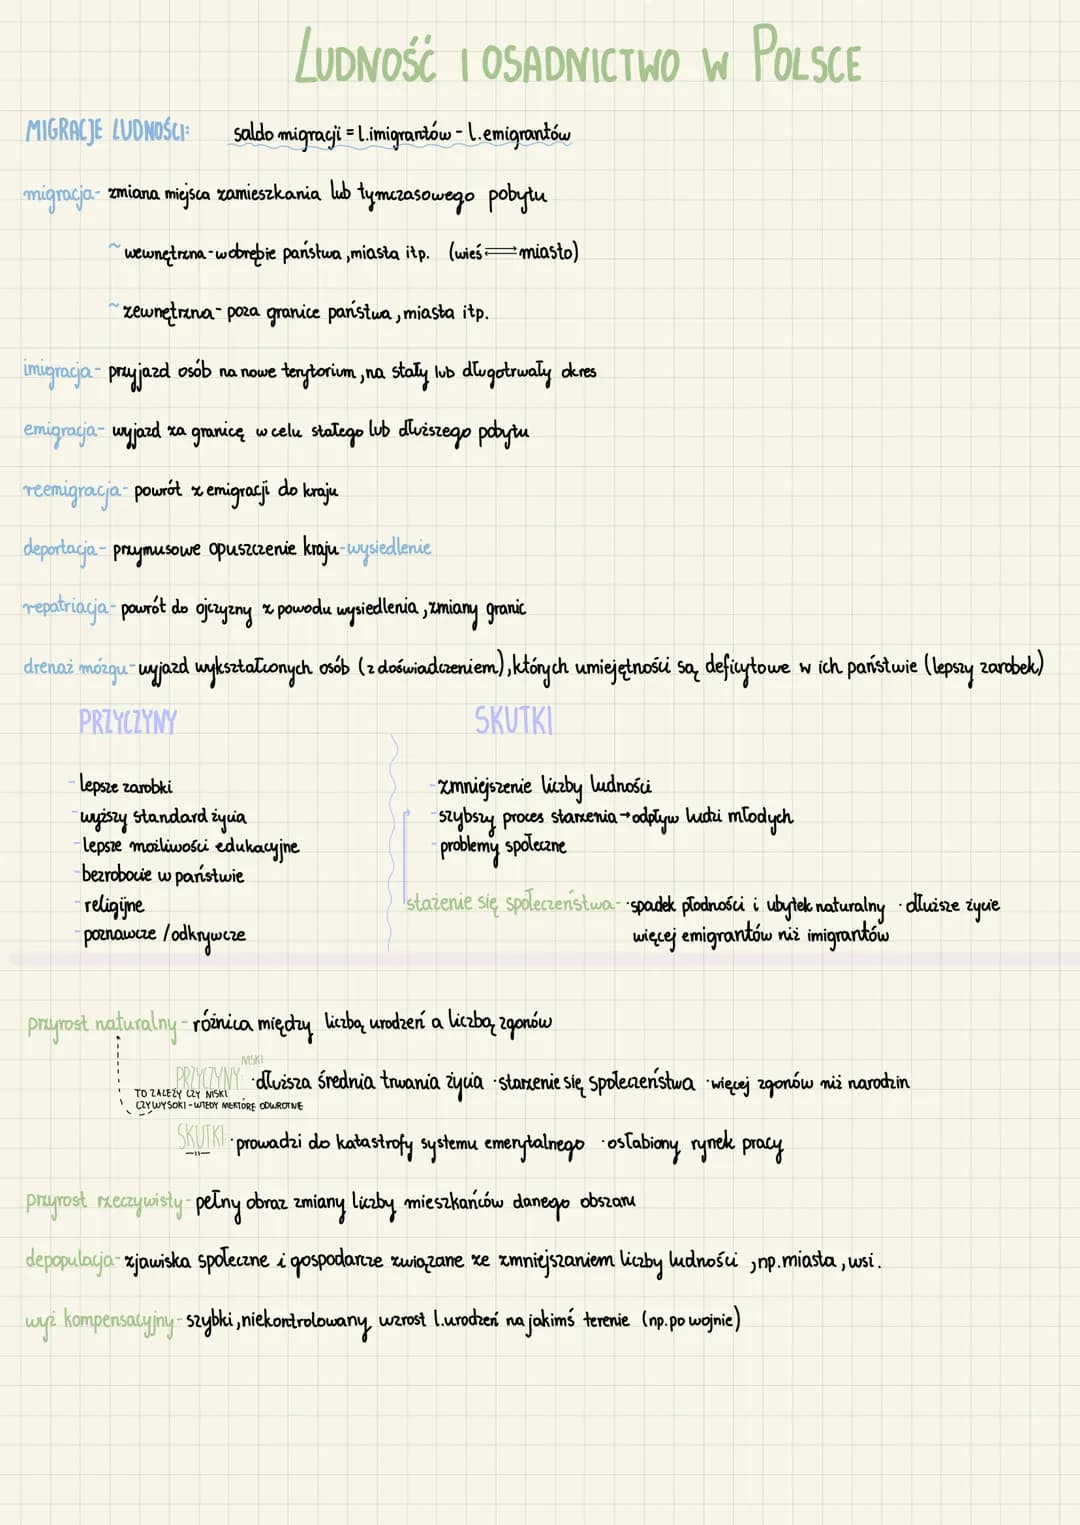 LUDNOŚĆ I OSADNICTWO W POLSCE
MIGRACJE LUDNOŚCI: saldo migracji = l.imigrantów - l.emigrantów
migracja- zmiana miejsca zamieszkania lub tymczasowego pobytu
~ wewnętrzna - w obrębie państwa, miasta itp. (wieś ⇌ miasto)
~ zewnętrzna - poza granice państwa, miasta itp.
imigracja- przyjazd osób na nowe terytorium, na stały lub długotrwały okres
emigracja- wyjazd za granicę w celu stałego lub dłuższego pobytu
reemigracja- powrót z emigracji do kraju
deportacja- przymusowe opuszczenie kraju-wysiedlenie
repatriacja- powrót do ojczyzny z powodu wysiedlenia, zmiany granic
drenaż mózgu- wyjazd wykształconych osób (z doświadczeniem), których umiejętności są deficytowe w ich państwie (lepszy zarobek)
PRZYCZYNY
- lepsze zarobki
- wyższy standard życia
- lepsze możliwości edukacyjne
- bezrobocie w państwie
- religijne
- poznawcze / odkrywcze
SKUTKI
- zmniejszenie liczby ludności
- szybszy proces starzenia → odpływ ludzi młodych
- problemy społeczne
stażenie się społeczeństwa- · spadek płodności i ubytek naturalny · dłuższe życie
więcej emigrantów niż imigrantów
przyrost naturalny - różnica między liczbą urodzeń a liczbą zgonów
NISKI
PRZYCZYNY · dłuższa średnia trwania życia · starzenie się społeczeństwa · więcej zgonów niż narodzin
TO ZALEŻY CZY NISKI
CZY WYSOKI - WTEDY NIEKTÓRE ODWROTNIE
SKUTKI · prowadzi do katastrofy systemu emerytalnego · osłabiony rynek pracy
-||-
przyrost rzeczywisty- pełny obraz zmiany liczby mieszkańców danego obszaru
depopulacja- zjawiska społeczne i gospodarcze związane ze zmniejszaniem liczby ludności, np. miasta, wsi.
wyż kompensacyjny- szybki, niekontrolowany wzrost l.urodzeń na jakimś terenie (np. po wojnie)